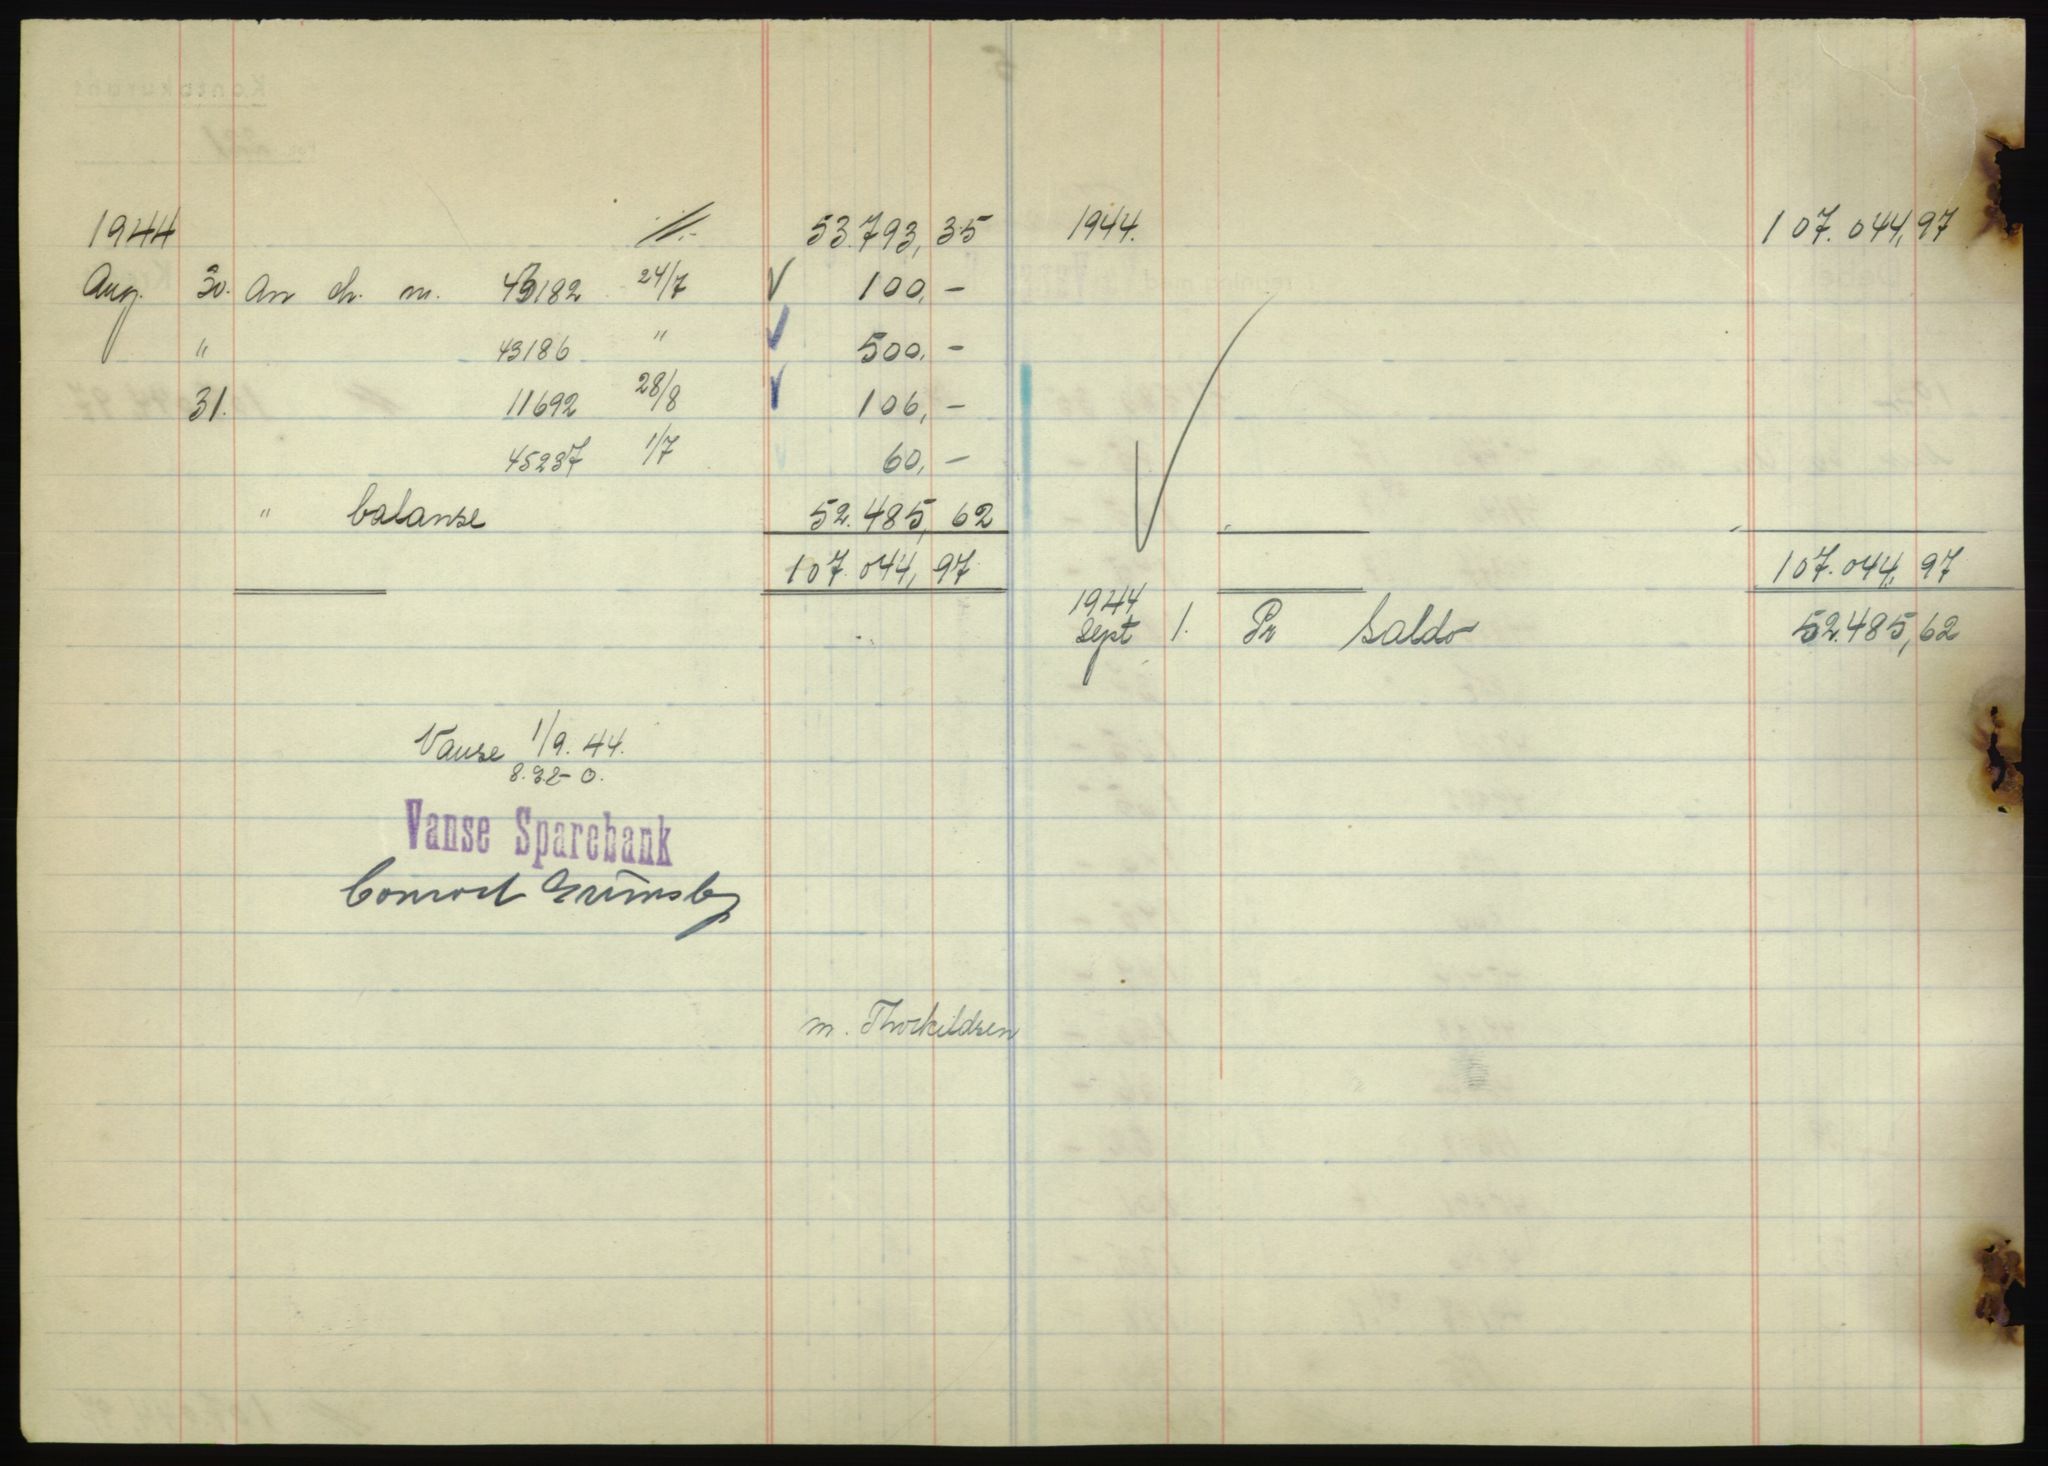 1944 53.793,35
Aug. 30. An ch. nr. 43182 24/7 100,-
" 43186 " 500,-
31. 11692 28/8 106,-
45237 1/7 60,-
" balanse 52.485,62
107.044,97
Vanse 1/9. 44.
Vanse Sparebank
Conrad Grimsby
m. Thorkildsen
1944. 107.044,97
107.044,97
1944
Sept 1. Pr Saldo 52.485,62